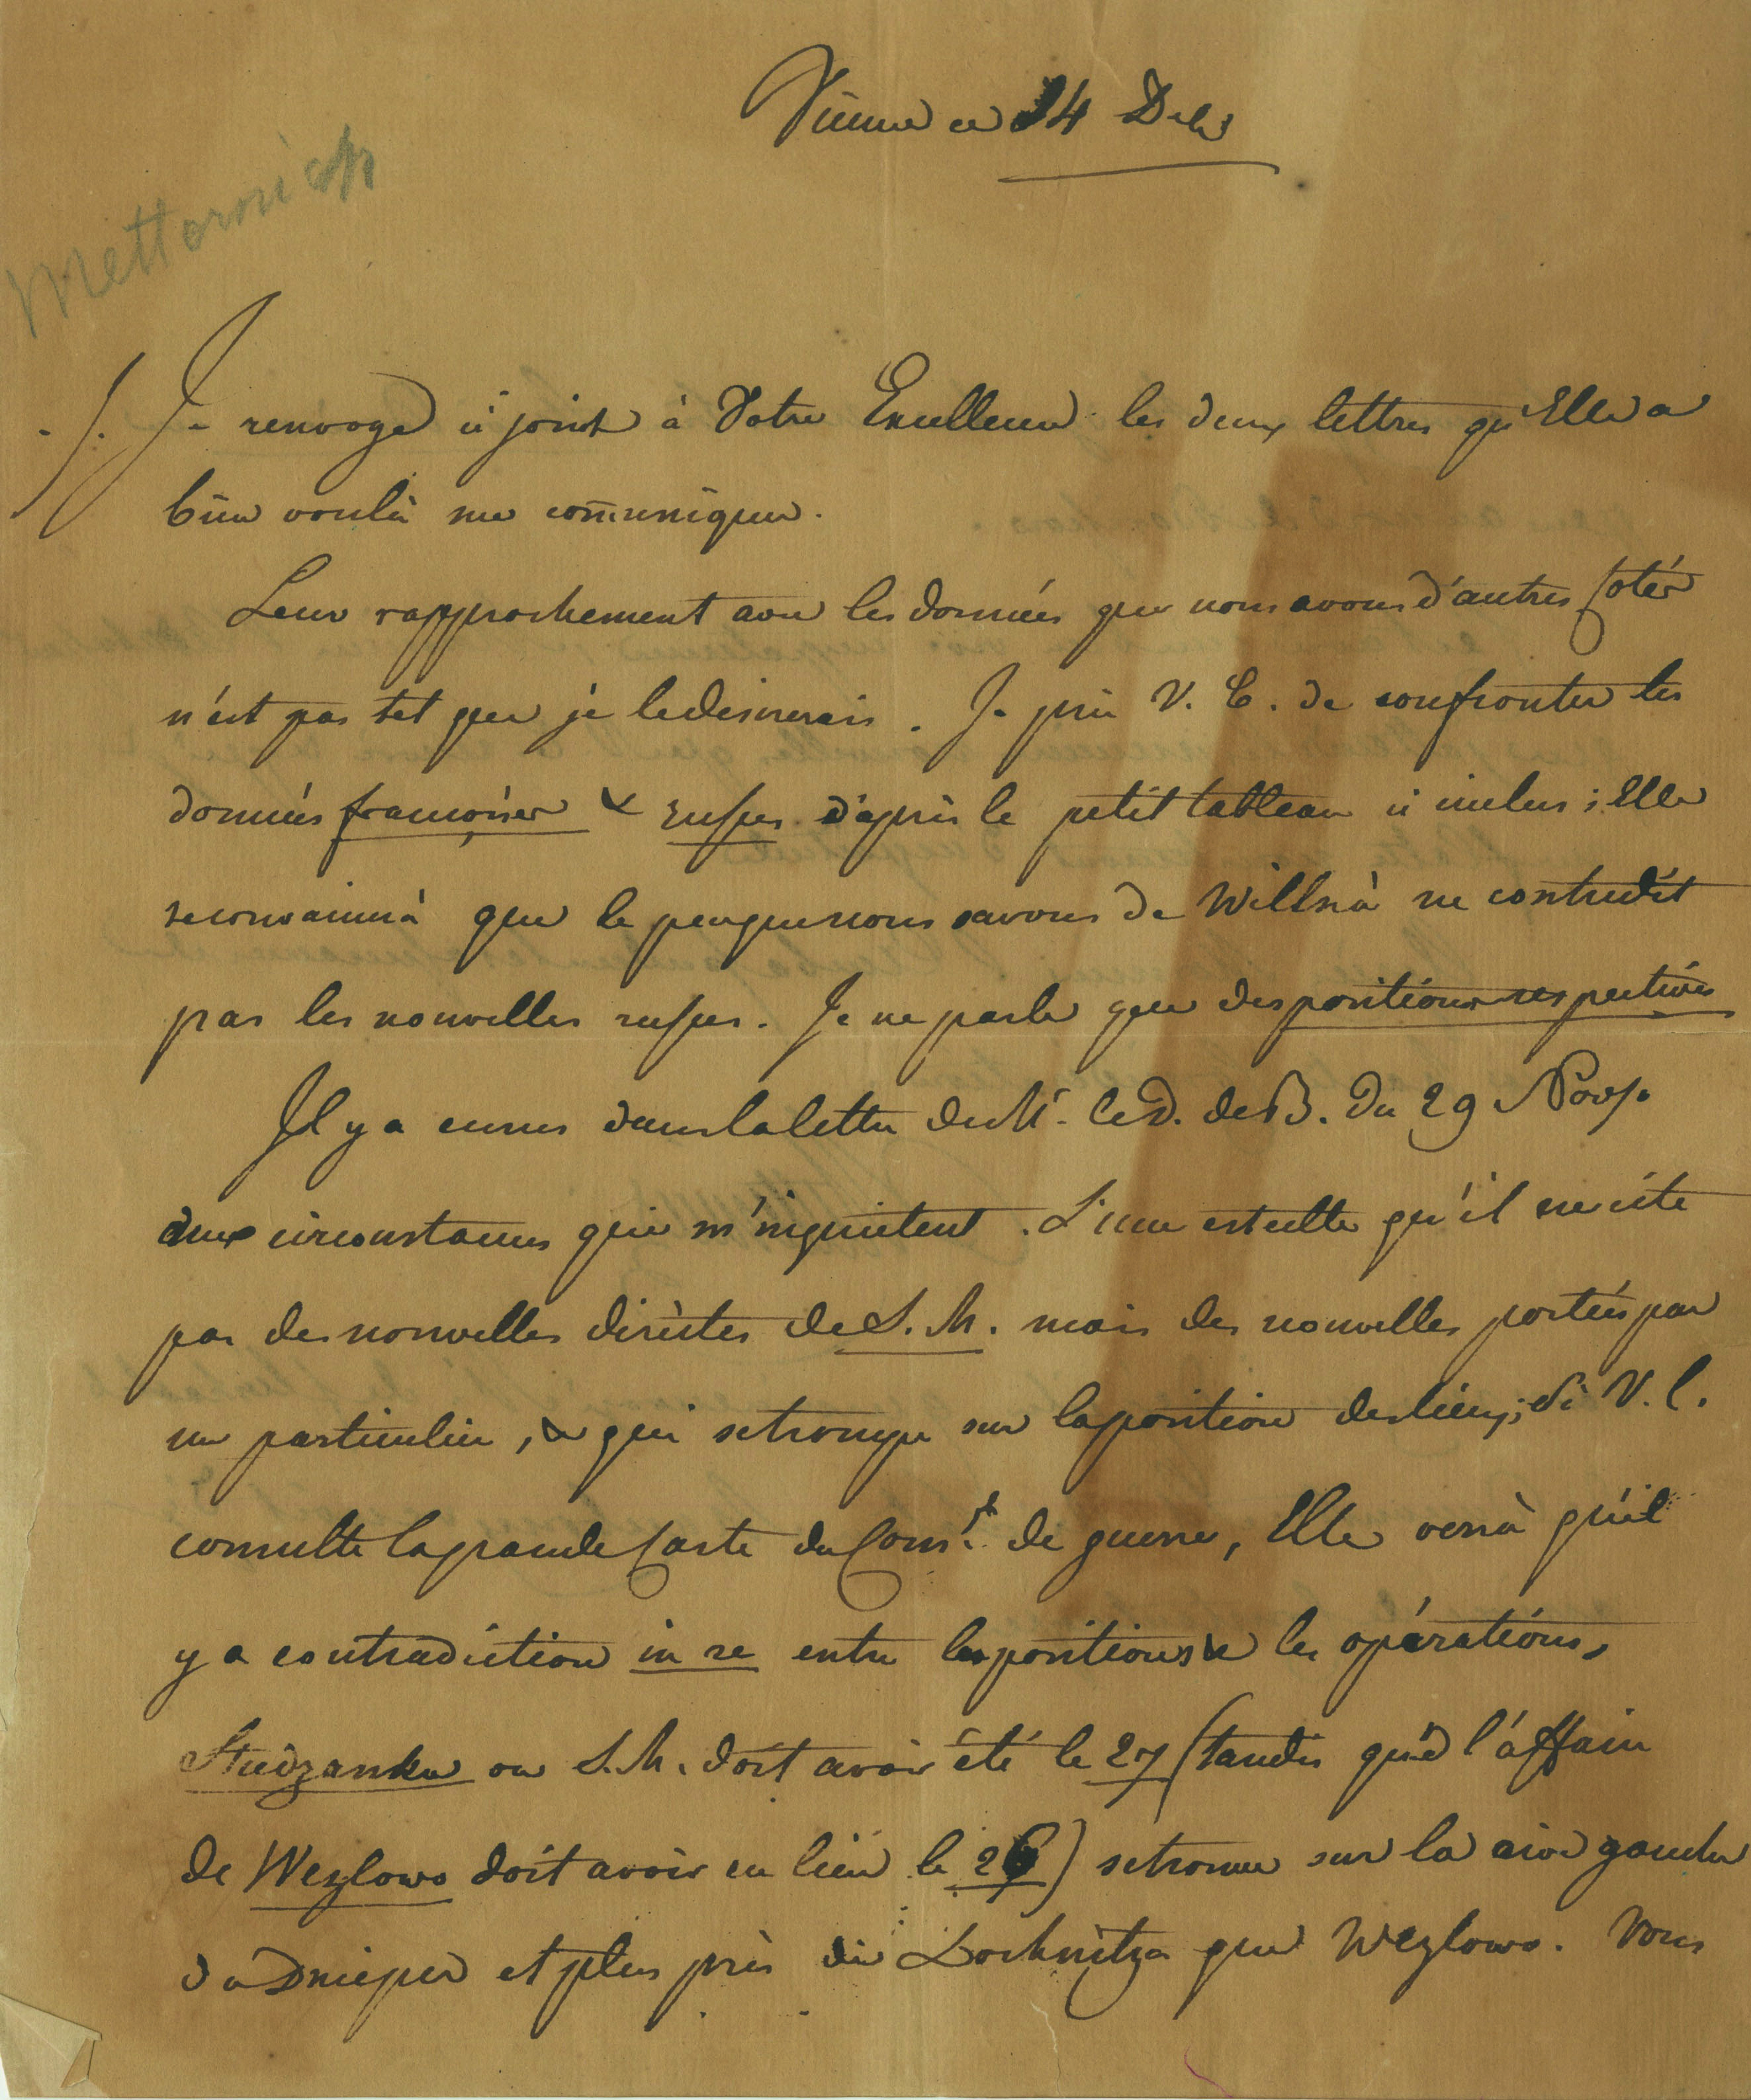 Vienne ce 14 Debr
Metternich
./. Je renvoye ci joint à Votre Excellence les deux lettres qu'Elle a
bien voulu me com̄uniquer.
Leur rapprochement avec les données que nous avons d'autres Cotés
n'est pas tel que je le desirerais. Je prie V. E. de confronter les
données françoises & russes d'après le petit tableau ci inclus ; Elle
se convaincra que le peu que nous savons de Willna ne contredit
pas les nouvelles russes. Je ne parle que des positions respectives
Il y a encore dans la lettre de Mr. le D. de B. du 29 Nov.
deux circonstances qui m'inquietent. L'une est celle qu'il ne cite
pas des nouvelles directes de S. M. mais des nouvelles portées par
un particulier, & qui se trompe sur la position des lieux ; si V. E.
consulte la grande Carte du Const. de guerre, Elle verra qu'il
y a contradiction in re entre les positions & les opérations.
Studzanka où S. M. doit avoir été le 27 (tandis que l'affaire
de Wezlowo doit avoir eu lieu le 28) se trouve sur la rive gauche
du Dnieper et plus près de Lochnitza que Wezlowo. Vous